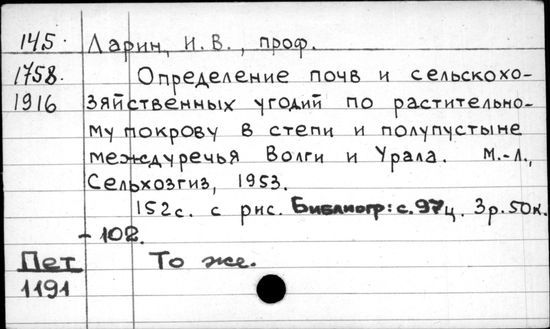 145. Ларин, И. В., проф.
1758. Определение почв и сельскохо-
1916 зяйственных угодий по растительно-
му покрову в степи и полупустыне
междуречья Волги и Урала. М.-Л.,
Сельхозгиз, 1953.
152 с. с рис. Библиогр: с. 97 ц. 3 р. 50 к.
- 102.
Пет То же.
1191